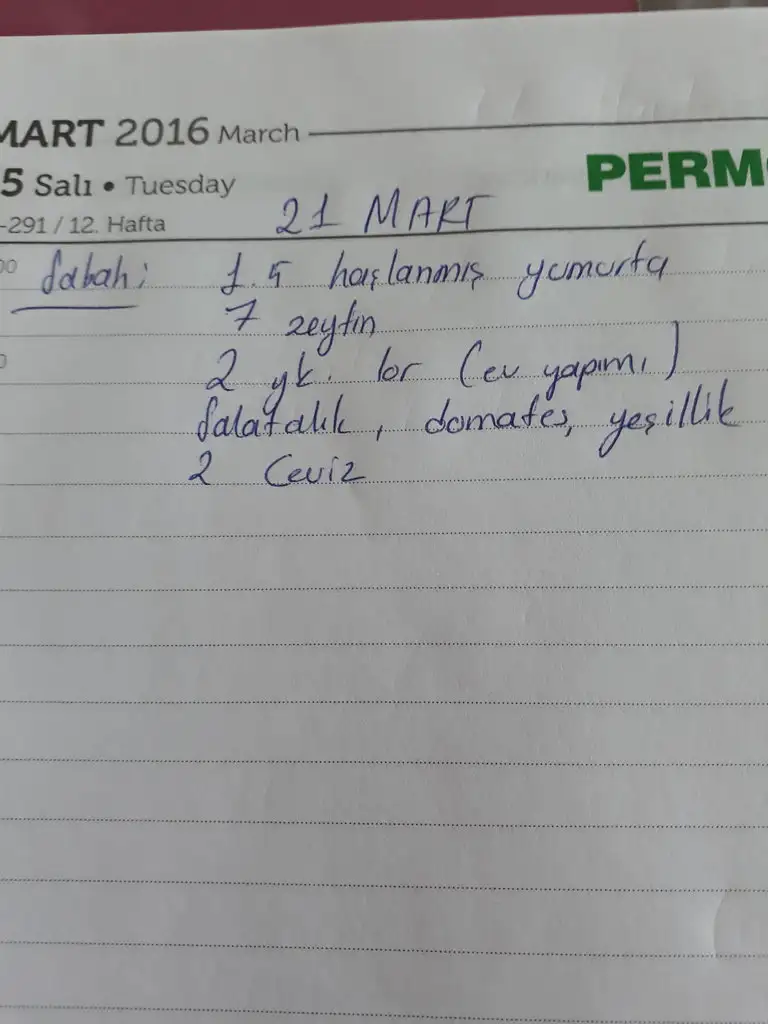 MART 2016 March
5 Salı • Tuesday
PERM
-291 / 12. Hafta
21 MART
Sabah:
1.5 haşlanmış yumurta
7 zeytin
2 yk. lor (ev yapımı)
Salatalık, domates, yeşillik
2 Ceviz